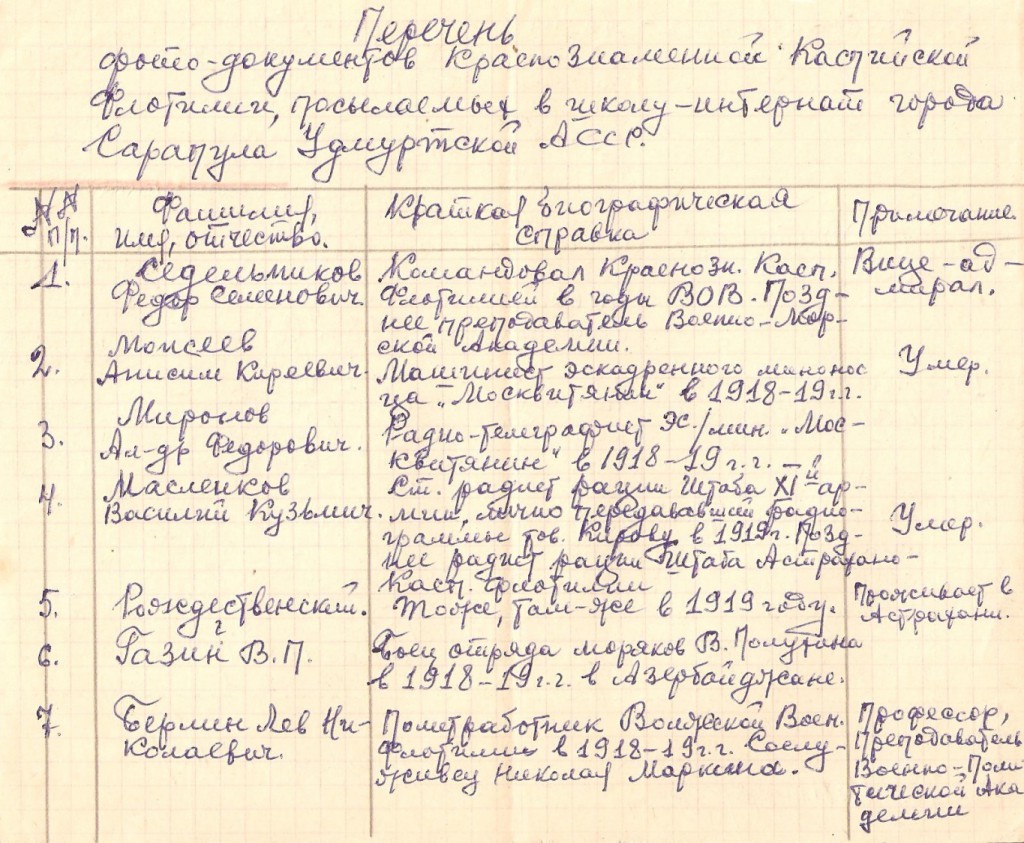 Перечень
фото-документов Краснознаменной Каспийской
Флотилии, посылаемых в школу-интернат города
Сарапула Удмуртской АССР.
№№ п/п.
Фамилия,
имя, отчество.
Краткая биографическая
справка
Примечание.
1.
Седельников
Федор Семенович.
Командовал Краснозн. Касп.
Флотилией в годы ВОВ. Позд-
нее преподаватель Военно-Мор-
ской Академии.
Вице-ад-
мирал.
2.
Моисеев
Анисим Киреевич.
Машинист эскадренного минонос
ца „Москвитянин" в 1918-19 г.г.
Умер.
3.
Миронов
Ал-др Федорович.
Радио-телеграфист эс/мин. „Мос-
квитянин" в 1918-19 г.г.
4.
Масленков
Василий Кузьмич.
Ст. радист рации Штаба XI-й ар-
мии, лично передававший радио-
граммы тов. Кирову в 1919 г. Позд-
нее радист рации Штаба Астрахано-
Касп. флотилии
Умер.
5.
Рождественский.
?
Тоже, там-же в 1919 году.
Проживает в
Астрахани.
6.
Газин В.П.
Боец отряда моряков В. Полутина
в 1918-19 г.г. в Азербайджане.
7.
Берлин Лев Ни-
колаевич.
Политработник Волжской Воен.
Флотилии в 1918-19 г.г. Сослу-
живец Николая Маркина.
Профессор,
Преподаватель
Военно-Поли
тической Ака
демии